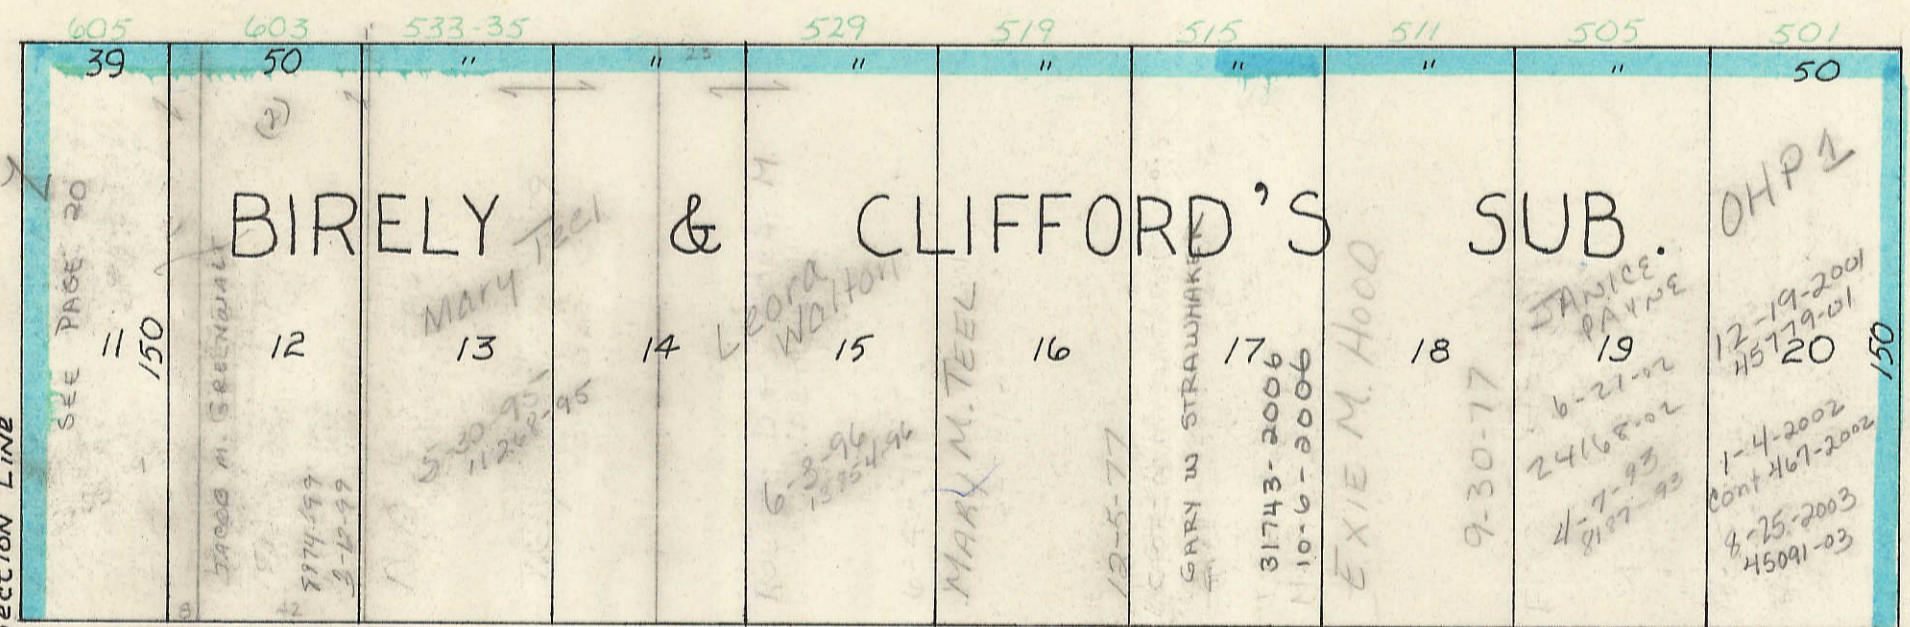 605 603 533-35 529 519 515 511 505 501
39 50 " " 23 " " " " " 50
(2)
BIRELY & CLIFFORD'S SUB.
SEE PAGE 20
11 150
Section Line
JACOB M. GREENWALT
12
8974-99
3-12-99
Mary Teel
13
5-30-95
11268-95
14
Leora
Walton
15
6-3-96
13854-96
MARY M. TEEL
16
12-5-77
GARY W STRAWHAKER
17
31743-2006
10-6-2006
EXIE M. HOOD
18
9-30-77
JANICE
PAYNE
19
6-21-02
24168-02
4-7-93
8187-93
OHP1
12-19-2001
45779-01
20 150
1-4-2002
Cont 467-2002
8-25-2003
45091-03